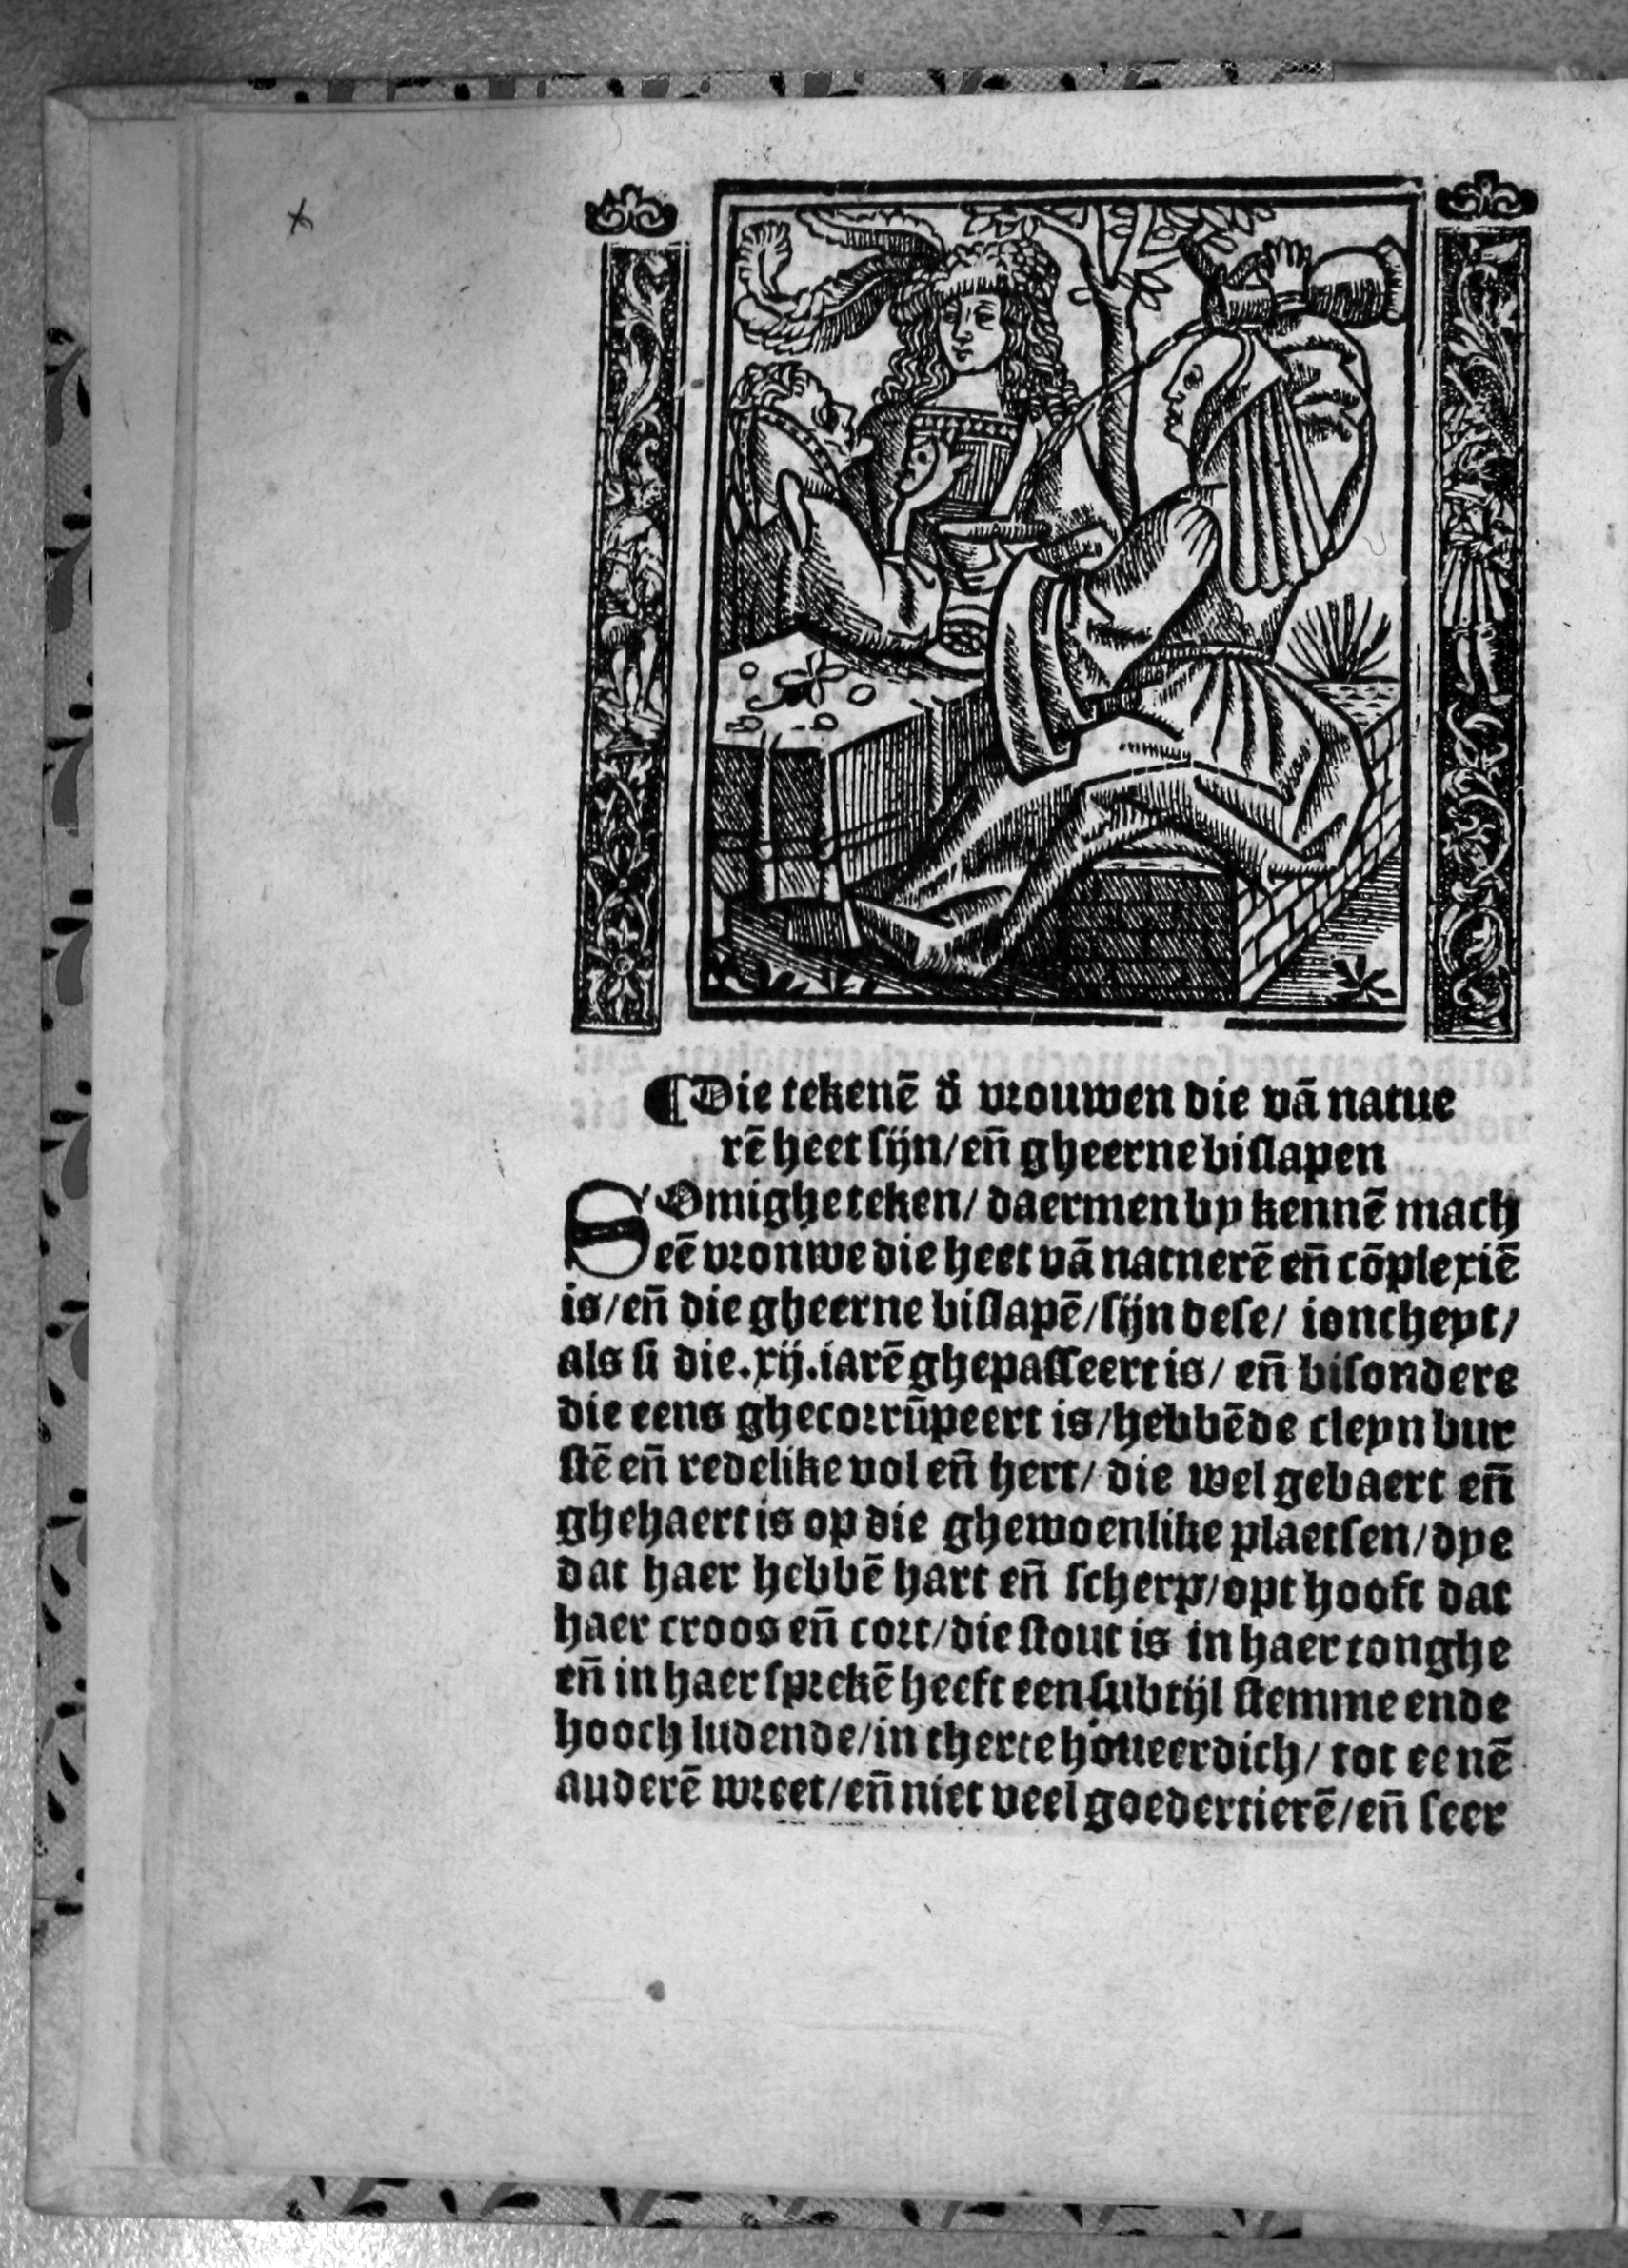 ¶Die tekenē đ vrouwen die vā natue
rē heet sijn/eñ gheerne bislapen
SOmighe teken/ daermen by kennē mach
eē vronwe die heet vā natnerē eñ cōplexiē
is/eñ die gheerne bislapē/sijn dese/ ioncheyt/
als si die.xij.iarē ghepasseert is/ eñ bisondere
die eens ghecorrūpeert is/hebbēde cleyn bur
stē eñ redelike vol eñ hert/ die wel gebaert eñ
ghehaert is op die ghewoenlike plaetsen/dye
dat haer hebbē hart eñ scherp/opt hooft dat
haer croos eñ cort/die stout is in haer tonghe
eñ in haer sprekē heeft een subtijl stemme ende
hooch ludende/in therte houeerdich/ tot eenē
auderē wreet/eñ niet veel goedertierē/eñ seer